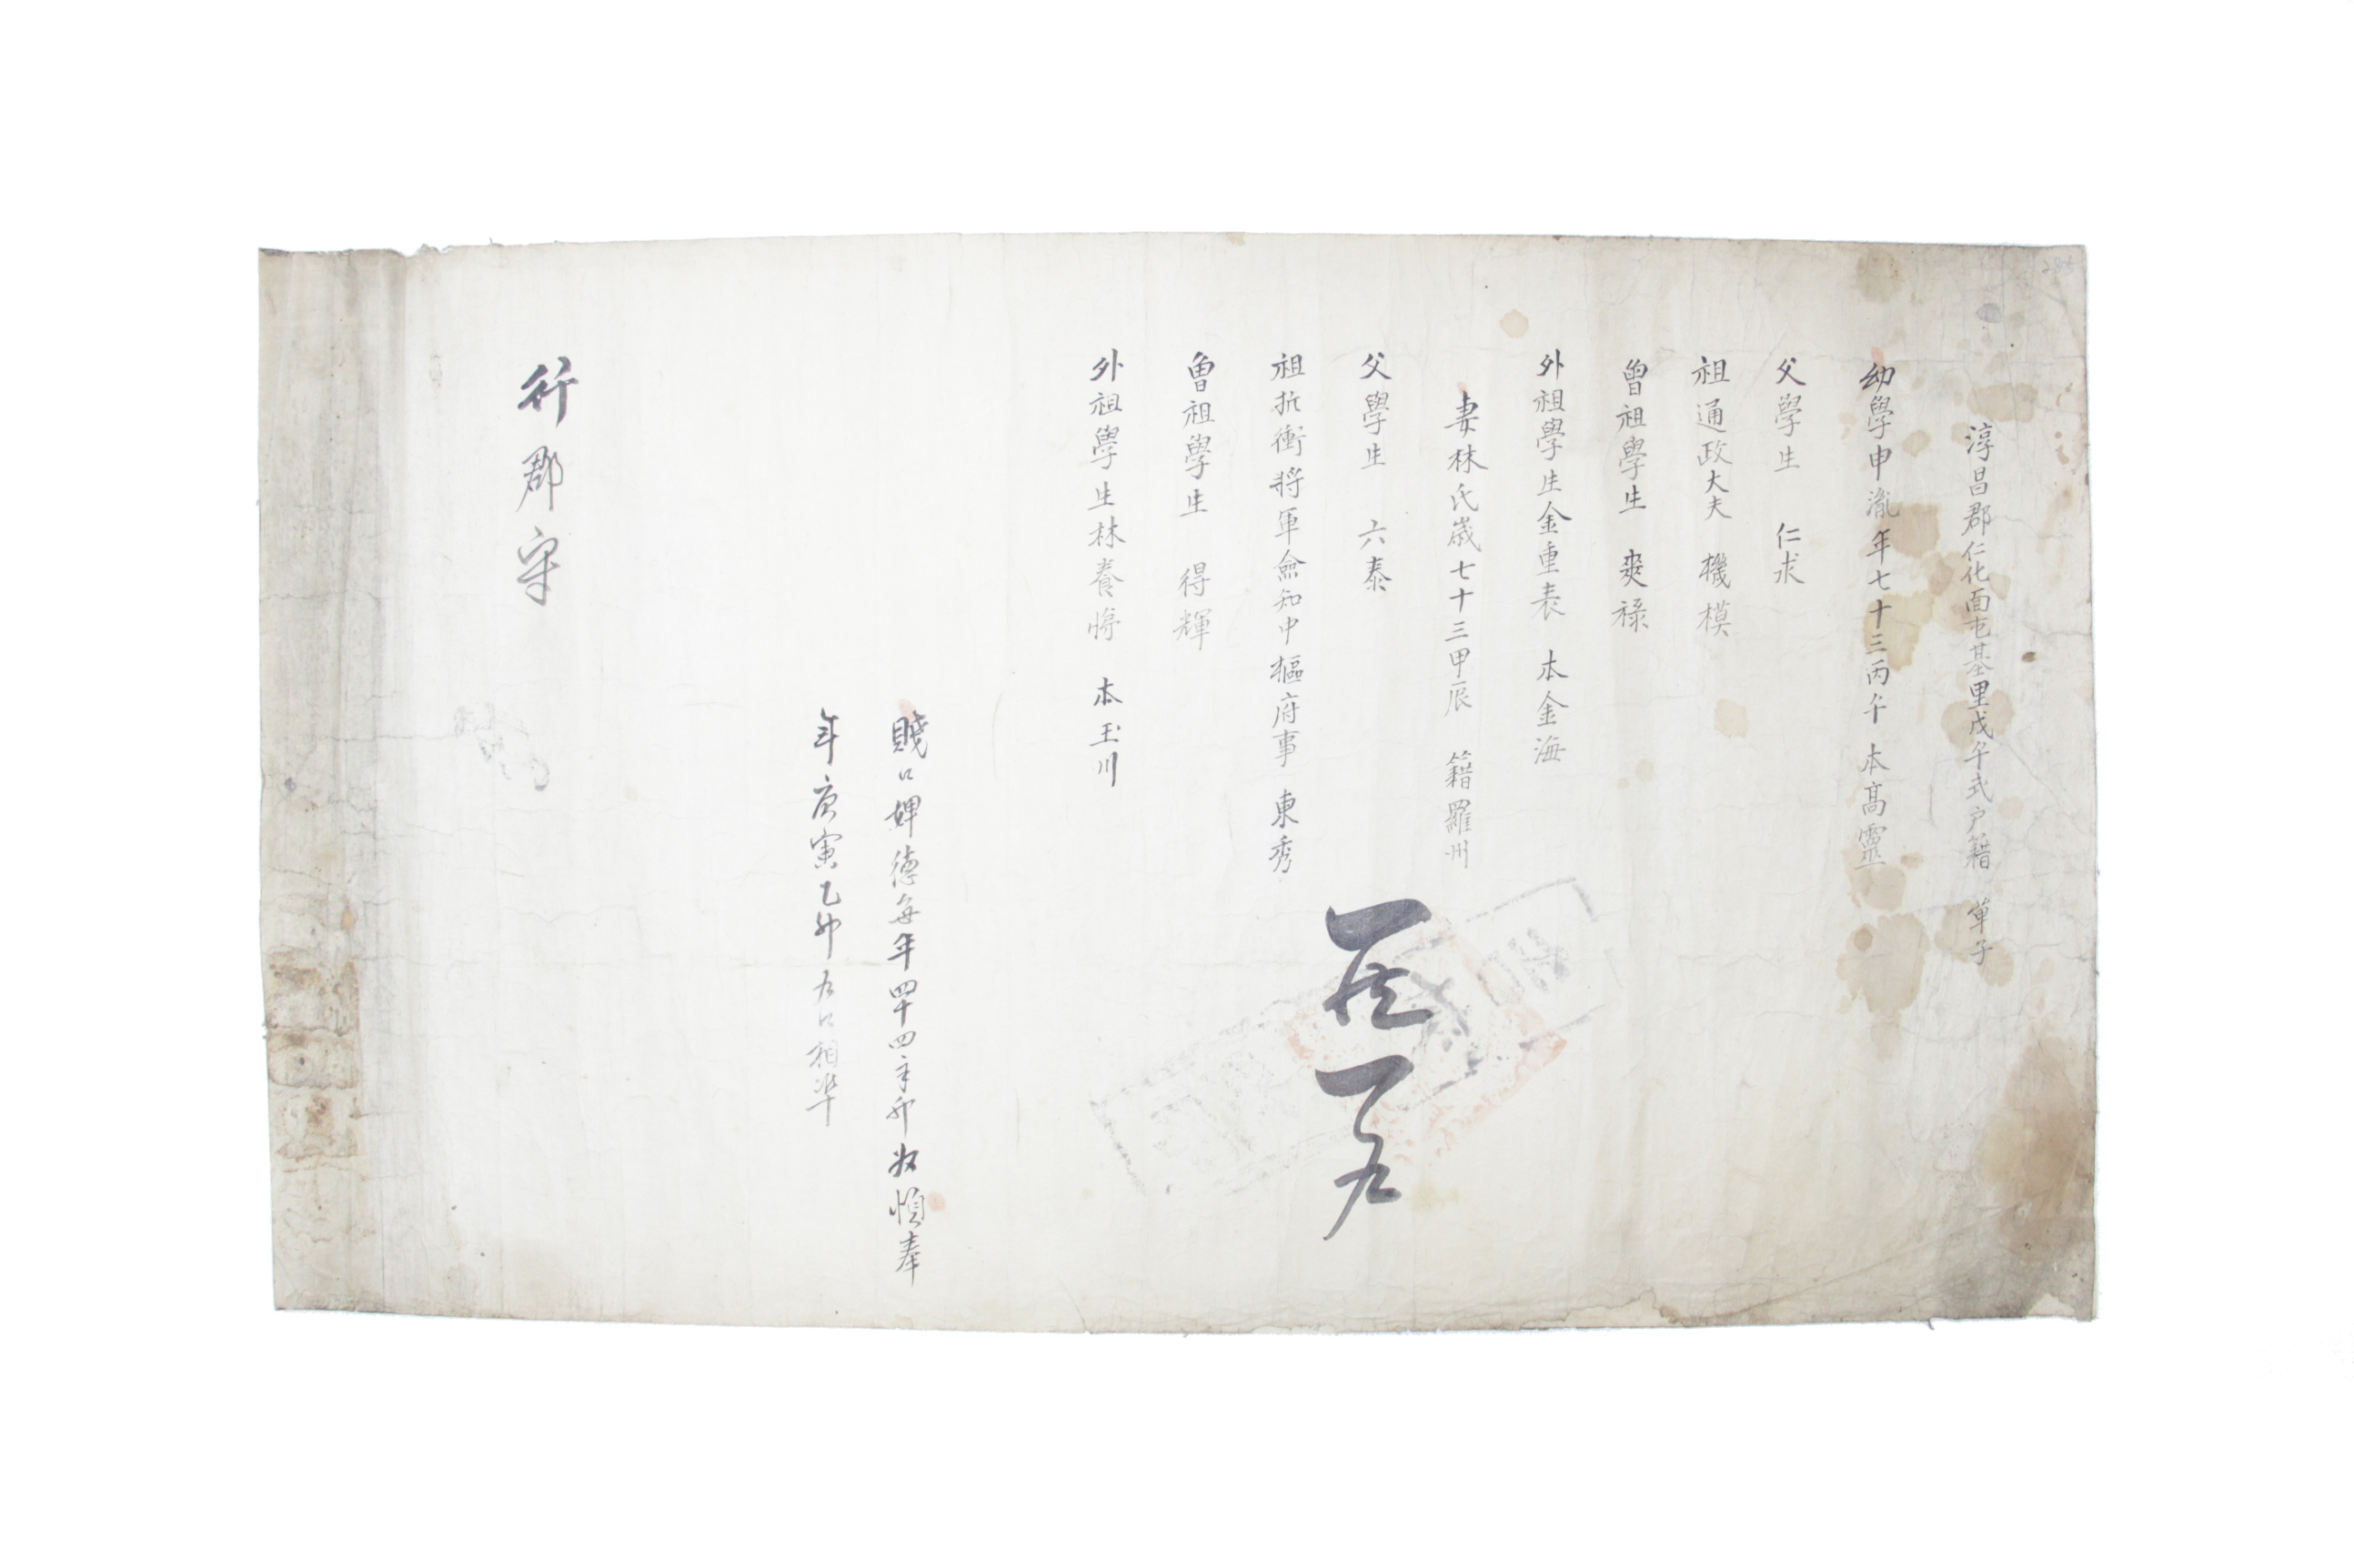 淳昌郡仁化面屯基里戊午式戶籍 單子
幼學申胤年七十三丙午 本高靈
父學生 仁求
祖通政大夫 機模
曾祖學生 奭祿
外祖學生金重表 本金海
妻林氏歲七十三甲辰 籍羅州
父學生 六泰
祖折衝將軍僉知中樞府事 東秀
曾祖學生 得輝
外祖學生林養 本玉川
賤口婢德每年四十四辛卯 奴順奉
年庚寅乙卯戶口相準
行郡守